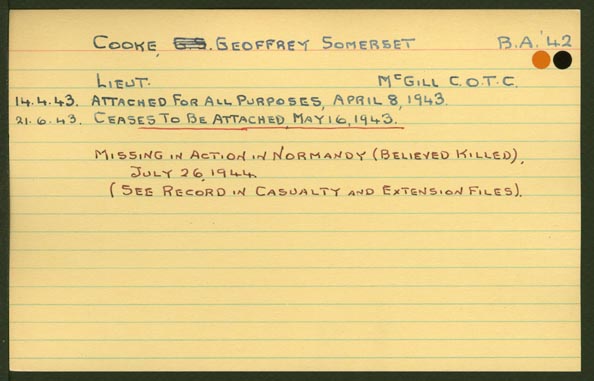 COOKE, G.S. GEOFFREY SOMERSET B.A. '42
LIEUT. McGILL C.O.T.C.
14.4.43. ATTACHED FOR ALL PURPOSES, APRIL 8, 1943.
21.6.43. CEASES TO BE ATTACHED, MAY 16, 1943.
MISSING IN ACTION IN NORMANDY (BELIEVED KILLED),
JULY 26, 1944.
(SEE RECORD IN CASUALTY AND EXTENSION FILES).